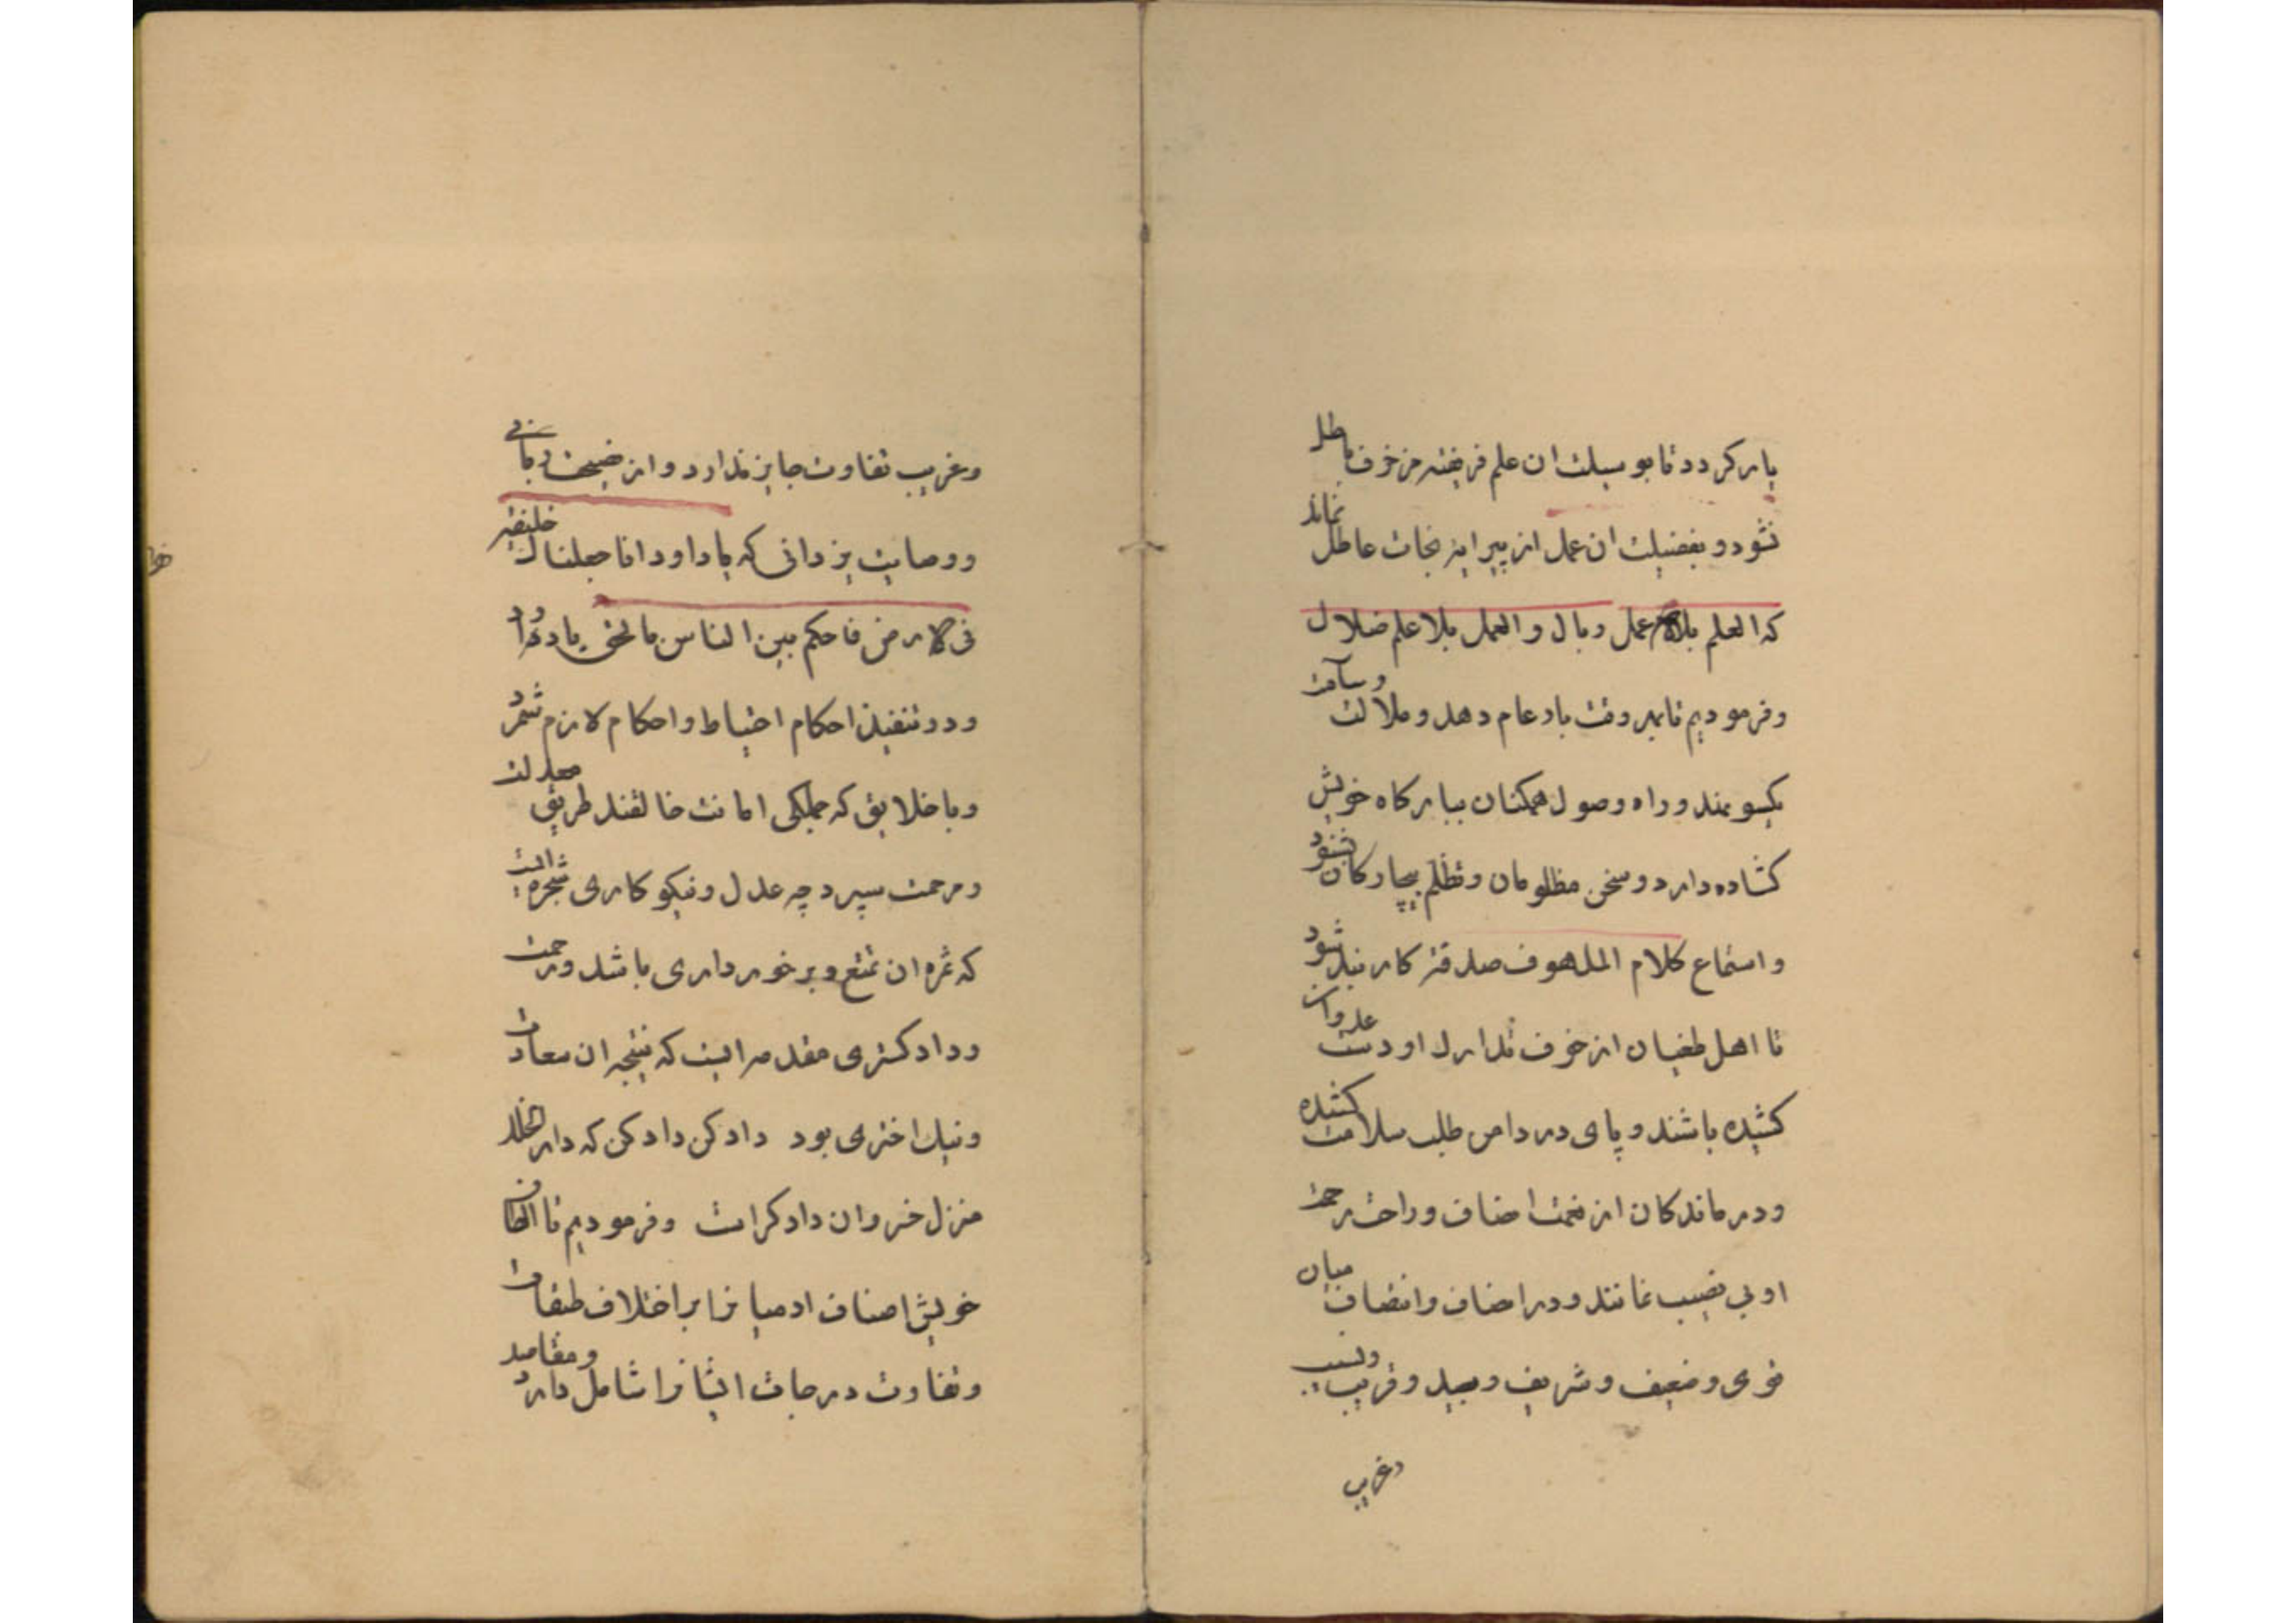 یار کردد تا بوسیلت ان علم فریفته مزخرف باطل
نشود و بفضیلت ان عمل از پیرایه نجات عاطل نماند
که العلم بلا عمل وبال و العمل بلا علم ضلال
و فرمودیم تا بهر وقت بار عام دهد و ملالت و سآمت
یکسو نهند و راه وصول همکنان ببارکاه خویش
کشاده دارد و سخن مظلومان و تظلم بیچارکان بشنود
و استماع کلام الملهوف صدقة کار بندد شود
تا اهل طغیان از خوف تدارک او دست عدوان
کشیده باشند و پای در دامن طلب سلامت کشیده
و درماندکان از نعمت انصاف و راحت رحمت
او بی نصیب نمانند و در انصاف و انتصاف میان
قوی و ضعیف و شریف و بعید و قریب و نسیب
وغریب
وغریب تفاوت جایز ندارد و از نصیحت ربانی
و وصایت یزدانی که یا داود انا جعلناک خلیفة
فی الارض فاحکم بین الناس بالحق یاد دارد
و در تنفیذ احکام احتیاط و احکام لازم شمرد
و با خلایق که جملکی امانت خالقند طریق معدلت
و مرحمت سپرد چه عدل و نیکو کاری شجره ایست
که ثمره ان تمتع و برخورداری باشد و رحمت
و داد کستری مقدمه ایست که نتیجه ان سعادت
و نیک اختری بود داد کن داد کن که دار الخلد
منزل خسروان دادکراست و فرمودیم تا الطاف
خویش اصناف ادمیانرا بر اختلاف طبقات
و تفاوت درجات ایشانرا شامل دارد و مقاصد